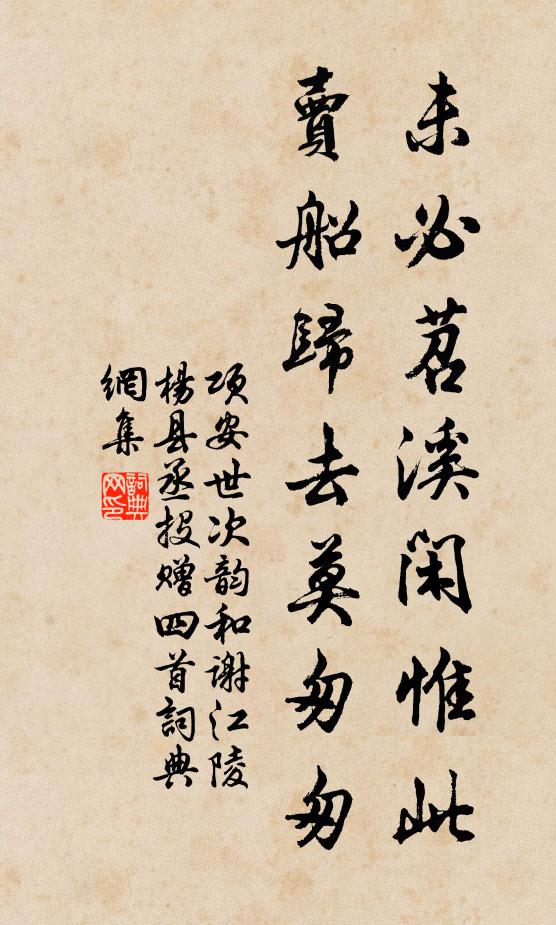 未必苕溪闲惟此
賣船歸去莫匆匆
项安世次韵和谢江陵
楊县丞投赠四首詞典
網集
詞典網印